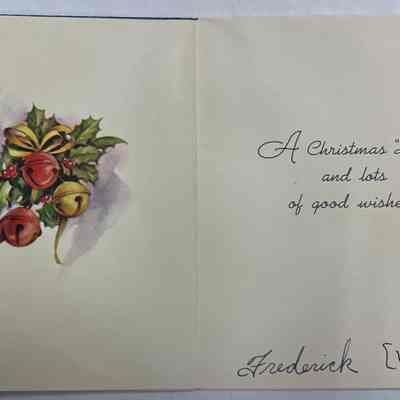 A Christmas
and lots
of good wishe
Frederick